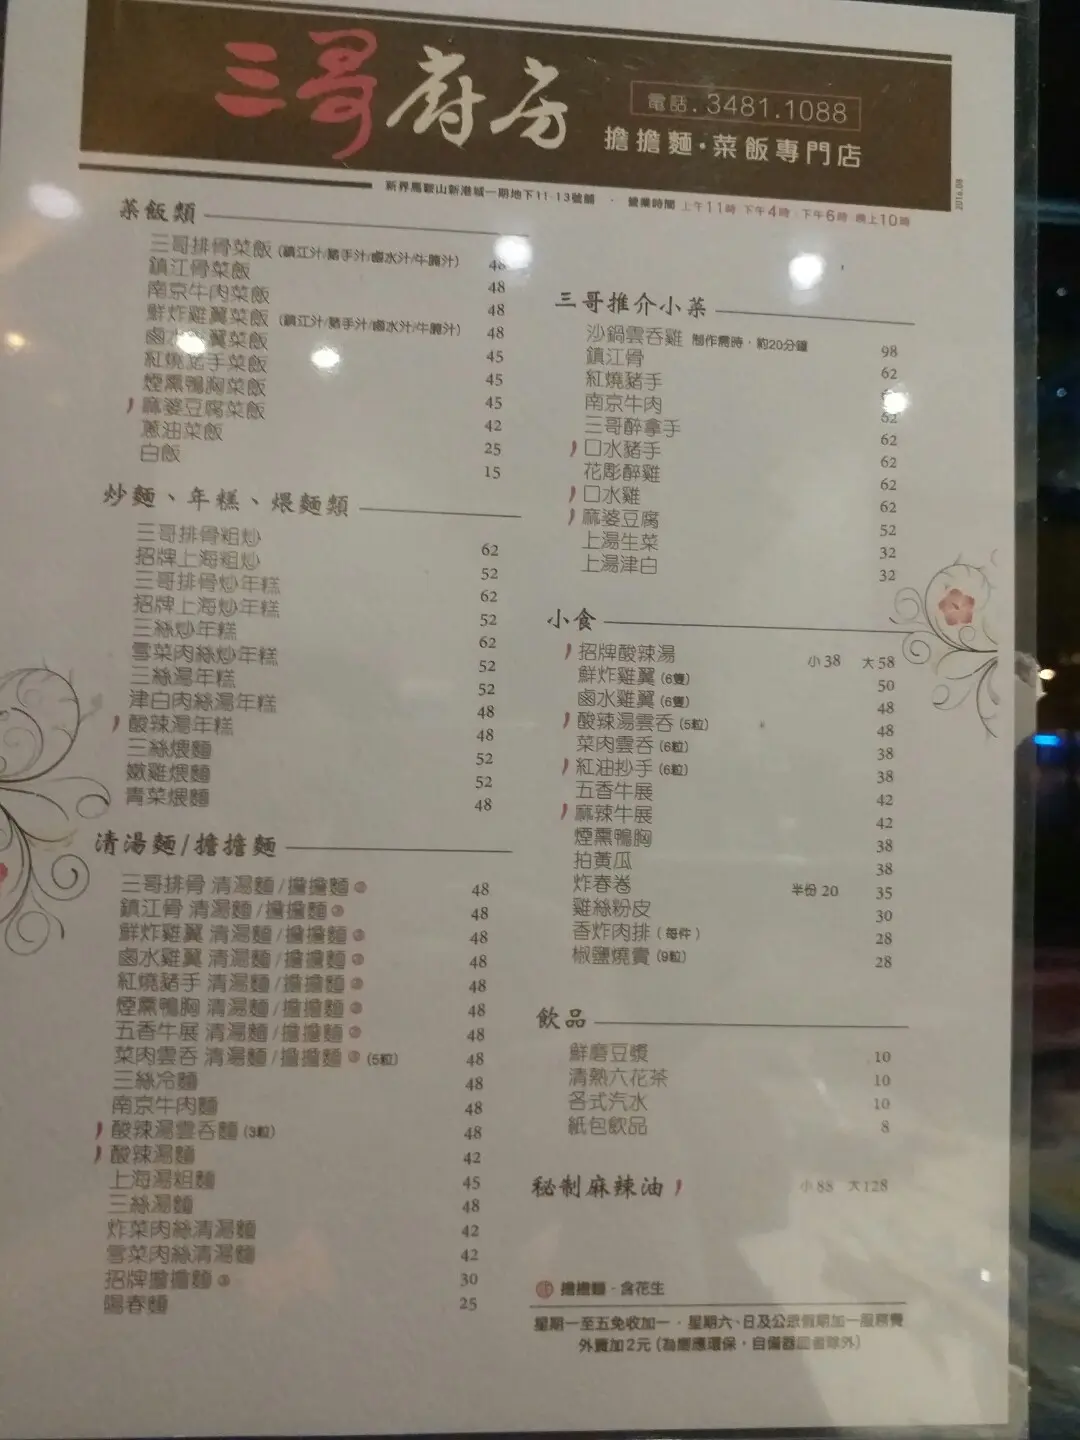 三哥廚房
電話.3481.1088
擔擔麵·菜飯專門店
新界馬鞍山新港城一期地下11-13號舖 · 營業時間 上午11時 下午4時 · 下午6時 晚上10時
2016.08
菜飯類
三哥排骨菜飯 (鎮江汁/豬手汁/鹵水汁/牛腩汁) 48
鎮江骨菜飯 48
南京牛肉菜飯 48
鮮炸雞翼菜飯 (鎮江汁/豬手汁/鹵水汁/牛腩汁) 48
鹵水雞翼菜飯 45
紅燒豬手菜飯 45
煙熏鴨胸菜飯 45
麻婆豆腐菜飯 42
蔥油菜飯 25
白飯 15
炒麵、年糕、煨麵類
三哥排骨粗炒 62
招牌上海粗炒 52
三哥排骨炒年糕 62
招牌上海炒年糕 52
三絲炒年糕 62
雪菜肉絲炒年糕 52
三絲湯年糕 52
津白肉絲湯年糕 48
酸辣湯年糕 48
三絲煨麵 52
嫩雞煨麵 52
青菜煨麵 48
清湯麵/擔擔麵
三哥排骨 清湯麵/擔擔麵 48
鎮江骨 清湯麵/擔擔麵 48
鮮炸雞翼 清湯麵/擔擔麵 48
鹵水雞翼 清湯麵/擔擔麵 48
紅燒豬手 清湯麵/擔擔麵 48
煙熏鴨胸 清湯麵/擔擔麵 48
五香牛展 清湯麵/擔擔麵 48
菜肉雲吞 清湯麵/擔擔麵 (5粒) 48
三絲冷麵 48
南京牛肉麵 48
酸辣湯雲吞麵 (3粒) 48
酸辣湯麵 42
上海湯粗麵 45
三絲湯麵 48
炸菜肉絲清湯麵 42
雪菜肉絲清湯麵 42
招牌擔擔麵 30
陽春麵 25
三哥推介小菜
沙鍋雲吞雞 制作需時,約20分鐘 98
鎮江骨 62
紅燒豬手
南京牛肉 62
三哥醉拿手 62
口水豬手 62
花彫醉雞 62
口水雞 62
麻婆豆腐 52
上湯生菜 32
上湯津白 32
小食
招牌酸辣湯 小38 大58
鮮炸雞翼 (6隻) 50
鹵水雞翼 (6隻) 48
酸辣湯雲吞 (5粒) 48
菜肉雲吞 (6粒) 38
紅油抄手 (6粒) 38
五香牛展 42
麻辣牛展 42
煙熏鴨胸 38
拍黃瓜 38
炸春卷 半份20 35
雞絲粉皮 30
香炸肉排 (每件) 28
椒鹽燒賣 (9粒) 28
飲品
鮮磨豆漿 10
清熱六花茶 10
各式汽水 10
紙包飲品 8
秘制麻辣油 小88 大128
擔擔麵 - 含花生
星期一至五免收加一 · 星期六、日及公眾假期加一服務費
外賣加2元 (為響應環保,自備器皿者除外)